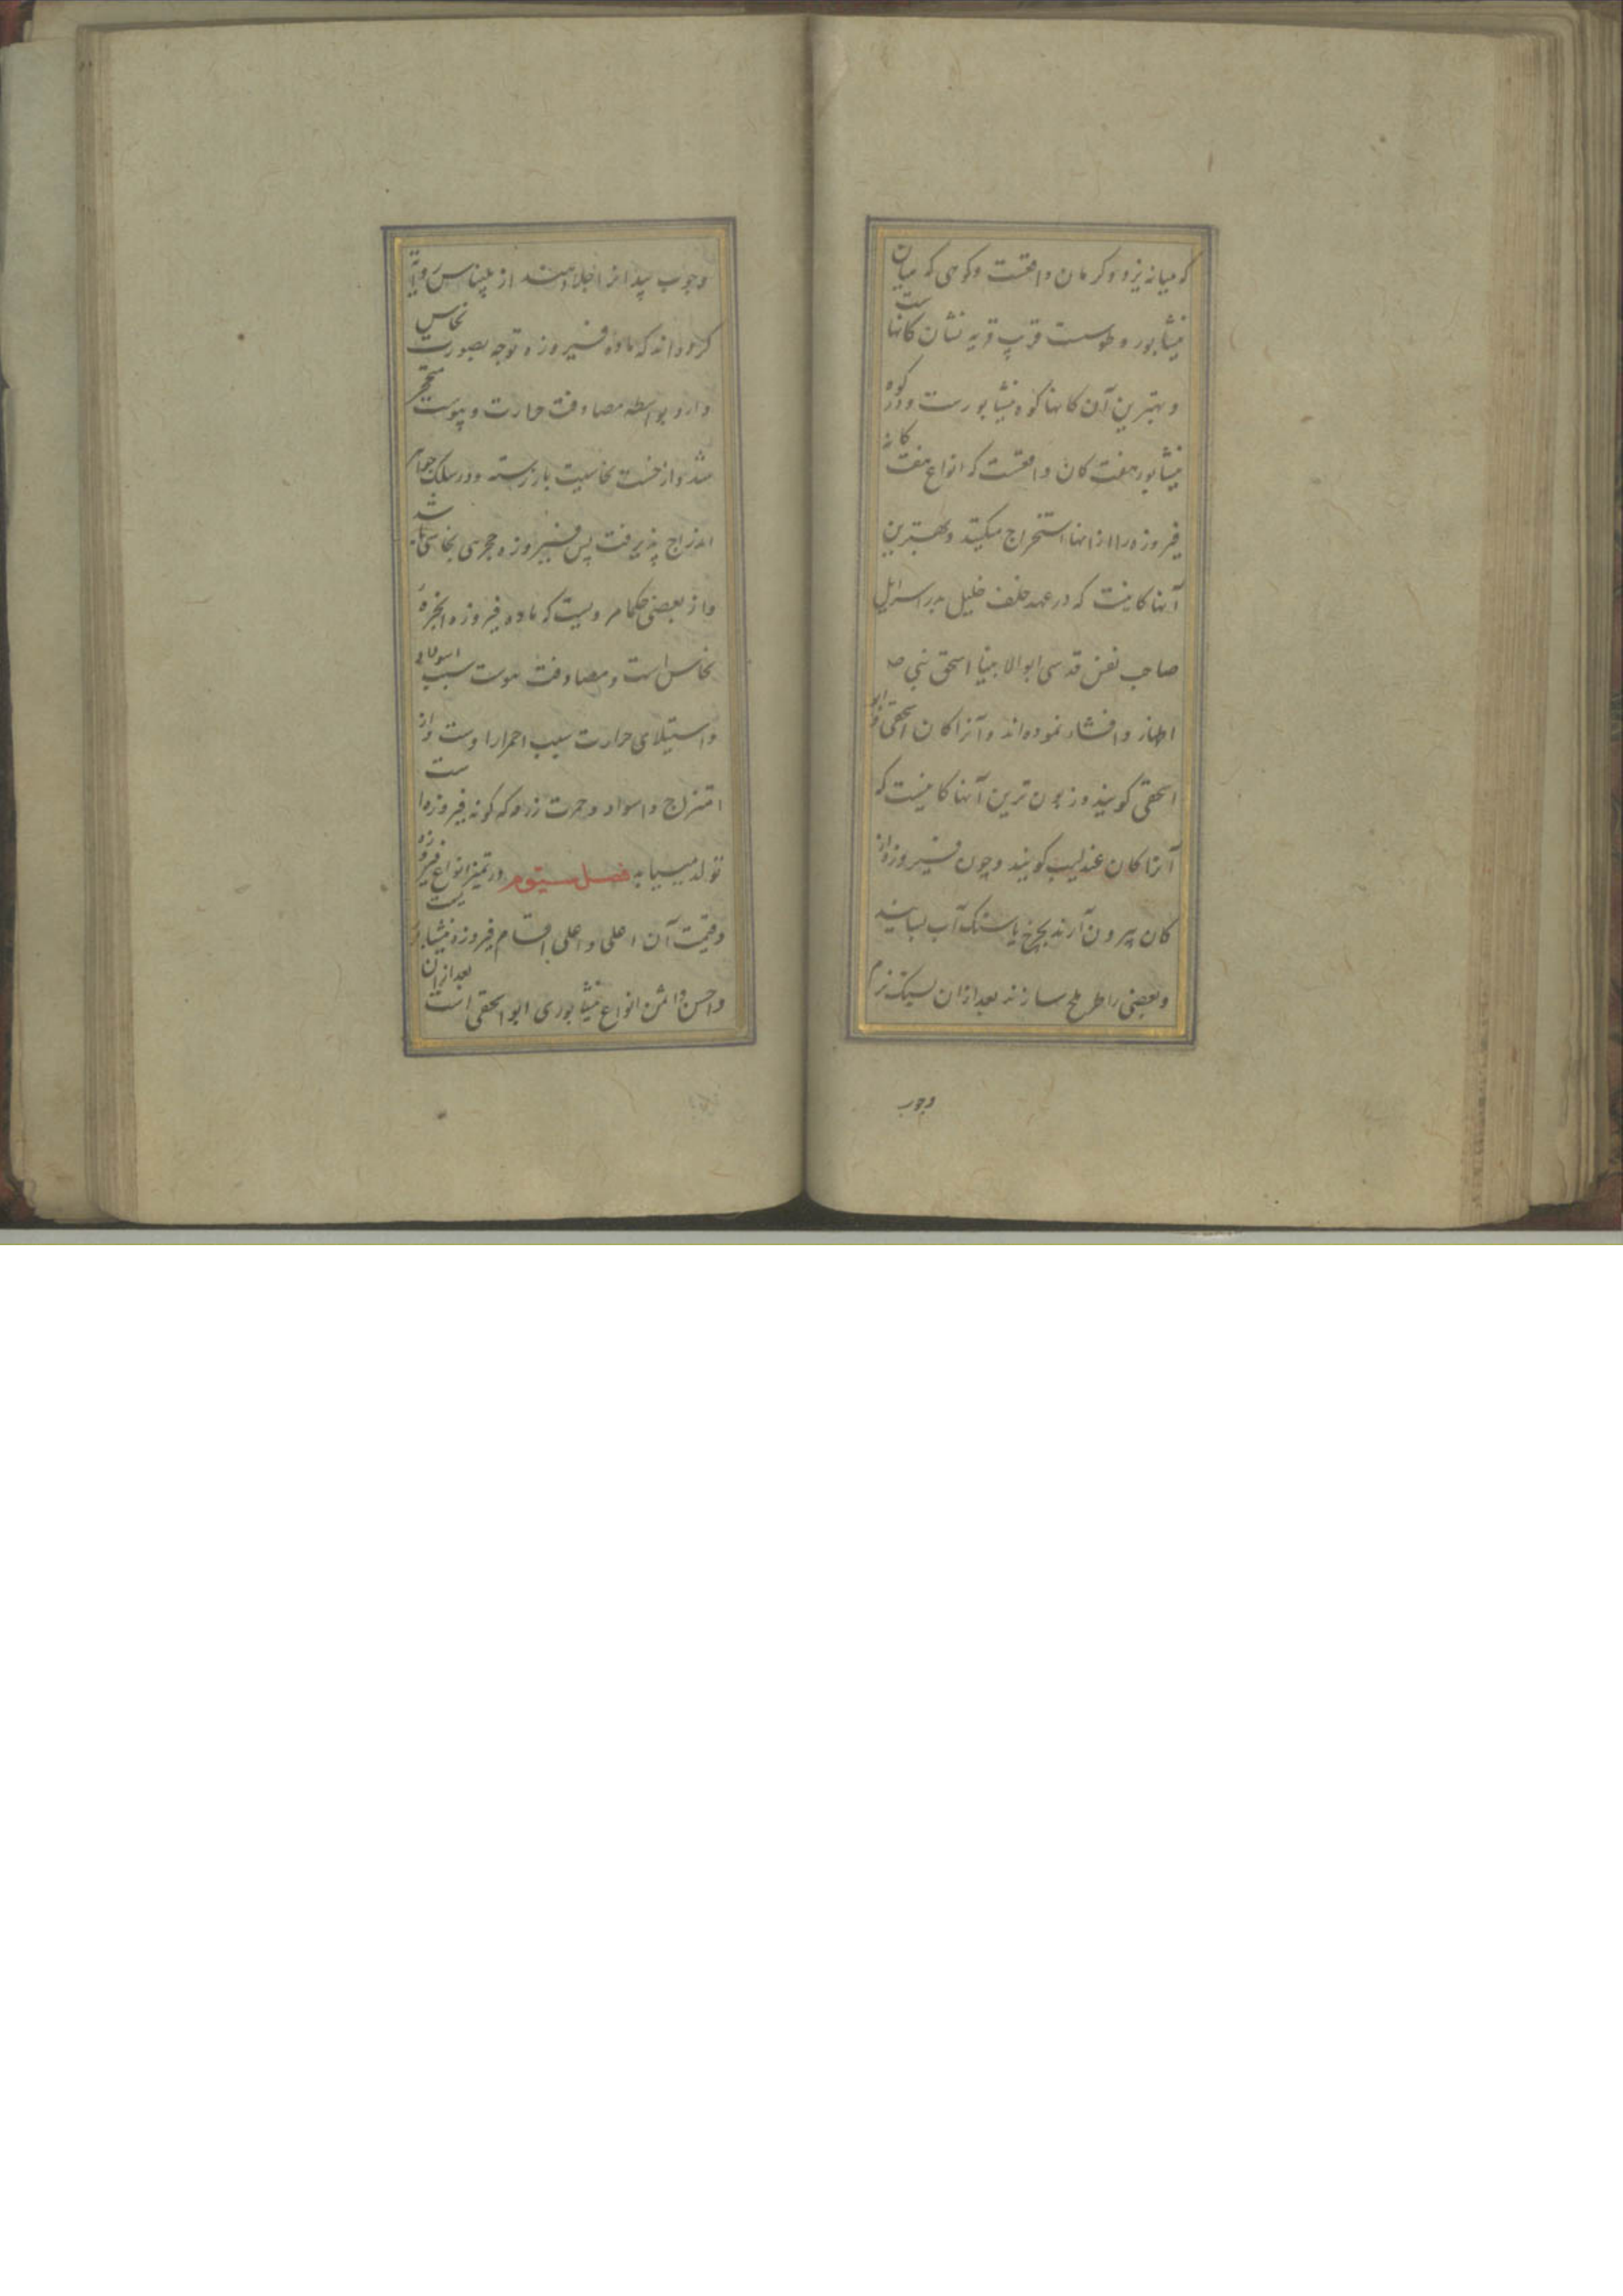 که میانه یزد و کرمان واقعست و کوهی که میان
نیشابور و طوست قرب قریه نشان کانهاست
و بهترین آن کانها کوه نیشابورست و در کوه
نیشابور هفت کان واقعست که انواع هفت کانه
فیروزه را از انها استخراج میکنند و بهترین
آنها کانیست که در عهد خلف خلیل پدر اسرایل
صاحب نفس قدسی ابوالانبیا اسحق نبی ص
اظهار و افشاء نموده‌اند و آنرا کان اسحقی و ابو
اسحقی کویند و زبون ترین آنها کانیست که
آنرا کان عندلیب کویند و چون فیروزه از
کان بیرون آرند بچرخ یا سنک آب بسایند
و بعضی را طرح سازند بعد ازان بسنک نرم
وچوب
وچوب بید انرا جلا دهند از بلیناس روایة
کرده‌اند که ماده فیروزه توجه بصورت نحاس
دارد بواسطه مصادفت حرارت و یبوست متحجر
شد و از خست نحاسیت باز رسته و در سلک
اندراج پذیرفت پس فیروزه حجری نحاسی باشد
و از بعضی حکما مرویست که ماده فیروزه ابخرهٔ
نحاس است و مصادفت سبب
و استیلای حرارت سبب احمرار اوست و از
امتزاج و اسواد و حمرت زردکه کونه فیروزه است
تولد مییابد فصل سیوم در تمیز انواع فیروزه
و قیمت آن اعلی و اعلی اقسام فیروزه نیشابوریست
و احسن و اثمن انواع نیشابوری ابو اسحقی است بعد ازان